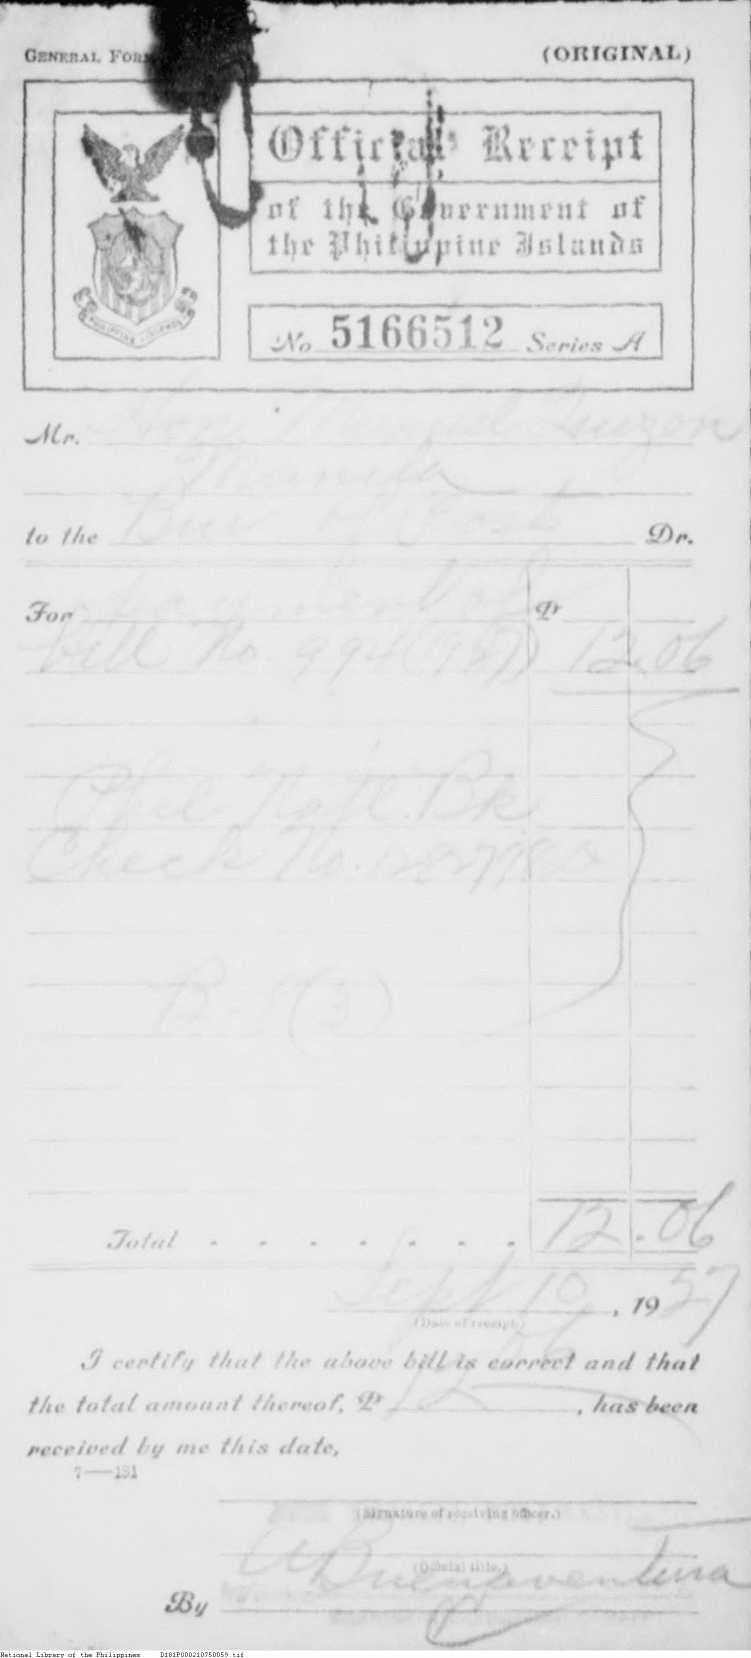 GENERAL FORM
(ORIGINAL)
Official Receipt
of the Government of
the Philippine Islands
PHILIPPINE ISLANDS
No 5166512 Series A
Mr. Hon. Manuel Quezon
Manila
to the Bur of Post Dr.
For payment of ₱
Bill No. 994(937) 12.06
Phil Natl. Bk
Check No.
B-5(3)
Total . . . . . . . 12.06
Sept 10, 1937
(Date of receipt)
I certify that the above bill is correct and that
the total amount thereof, ₱ 12 06, has been
received by me this date,
7—131
(Signature of receiving officer.)
(Official title.)
By Buenaventura
National Library of the Philippines D181P000210750059.tif